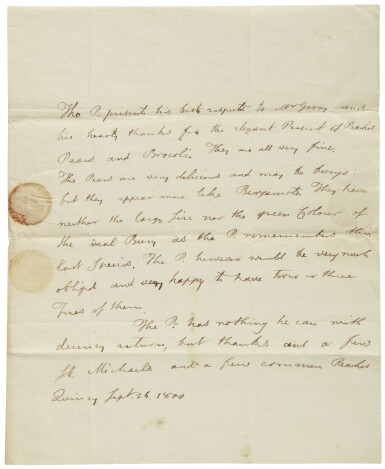 The P. presents his best respects to Mr Gerry and
his hearty thanks for the elegant Present of Peaches
Pears and Brocoli. They are all very fine.
The Pears are very delicious and may be Burys:
but they appear more like Bergamots. They have
neither the large Size nor the green Colour of
the real Bury as the P. remembers that
last Species. The P. however would be very much
obliged and very happy to have two or three
Trees of them.
The P. has nothing he can with
decency return, but thanks and a few
St Michaels and a few common Peaches
Quincy Sept. 26 1800